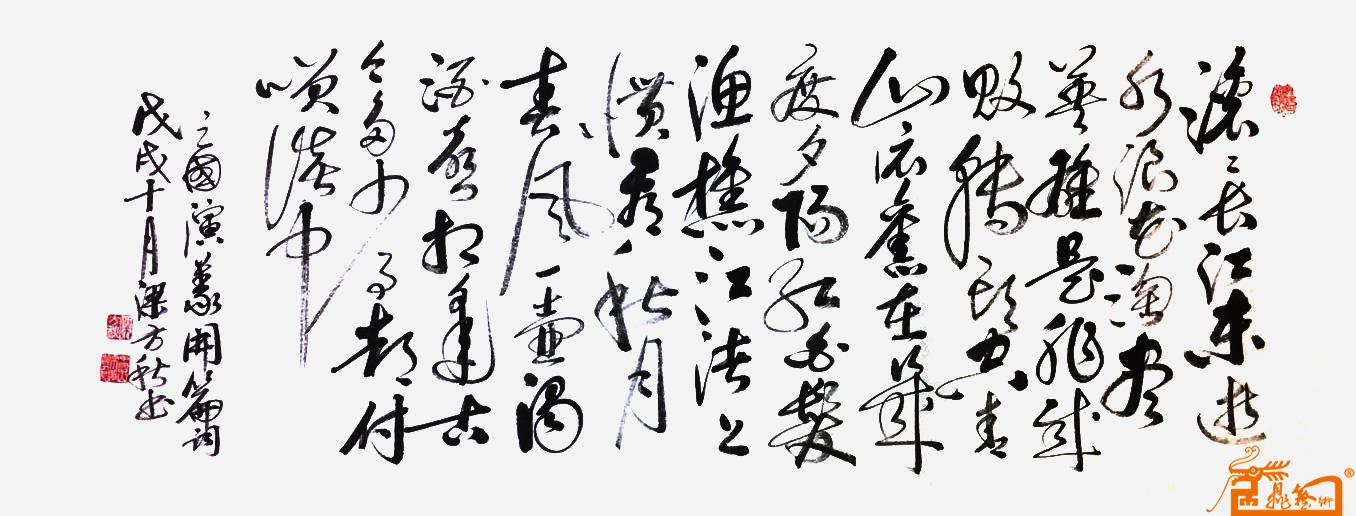 滚滚长江東逝
水浪花淘尽
英雄是非成
败转头空青
山依舊在幾
度夕陽红白髮
渔樵江渚上
惯看秋月
春風一壺濁
酒喜相逢古
今多少事都付
笑谈中
三國演義開篇词
戊戌十月梁方秋书